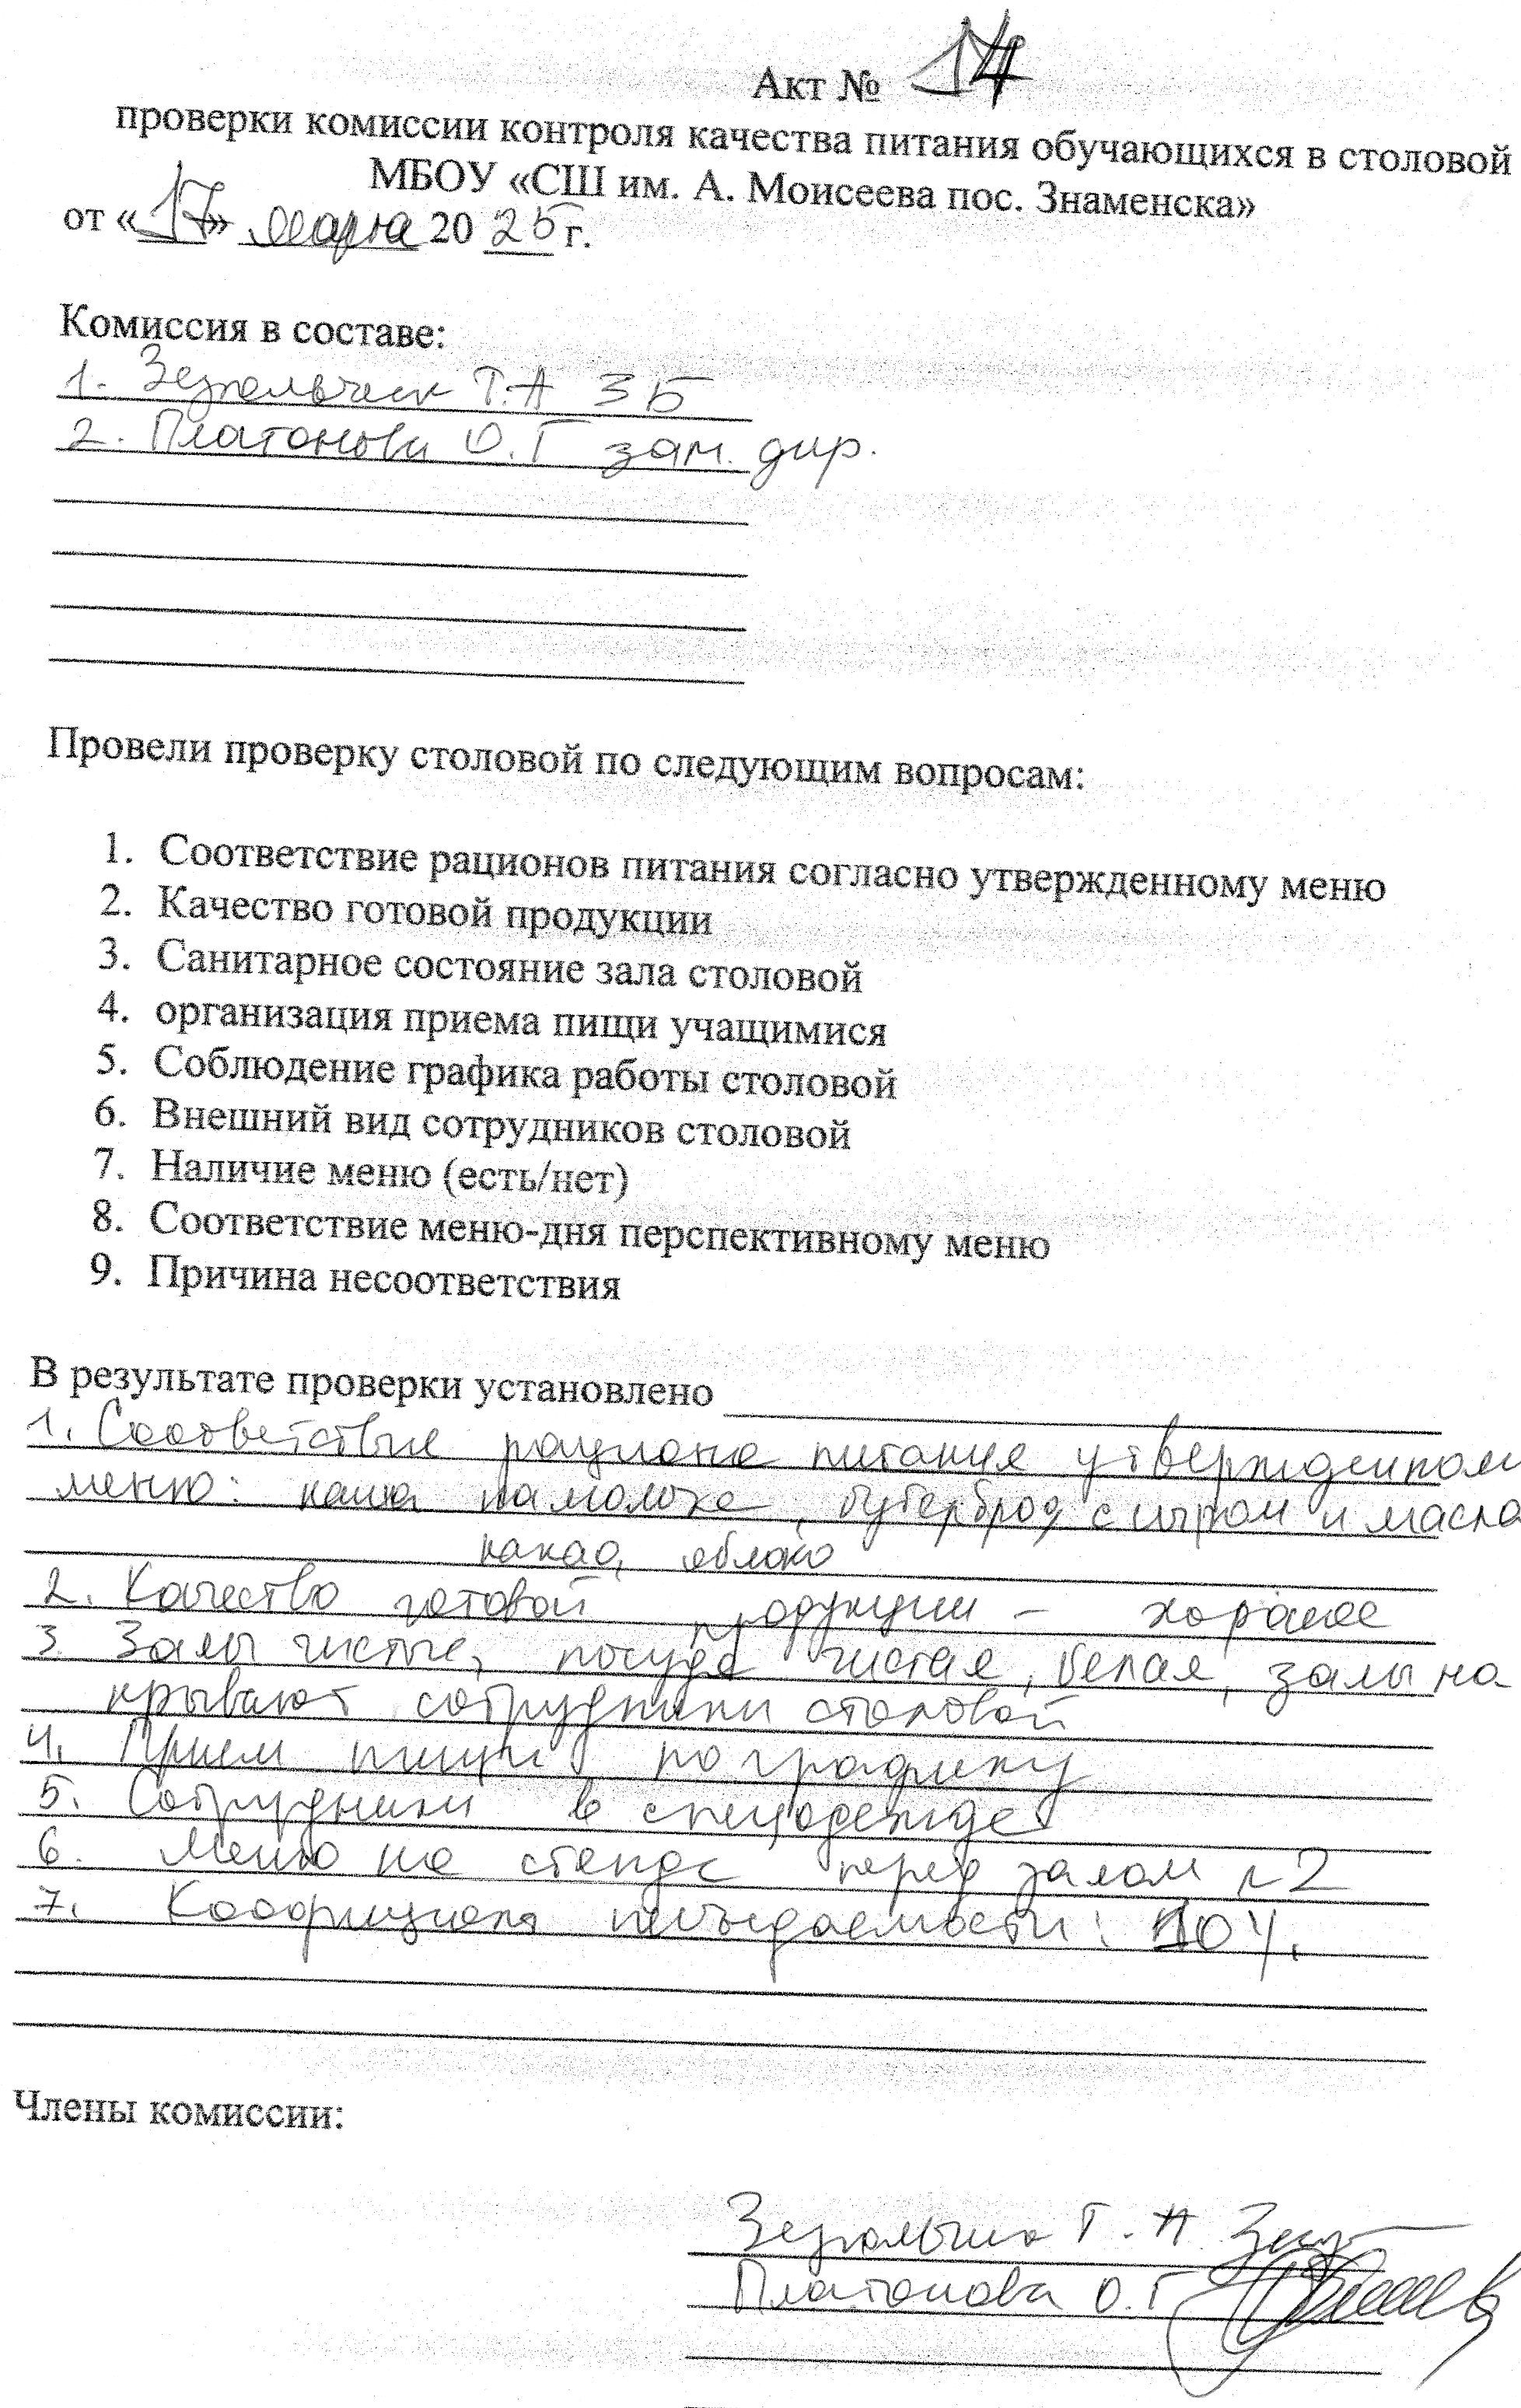 Акт № 14
проверки комиссии контроля качества питания обучающихся в столовой
МБОУ «СШ им. А. Моисеева пос. Знаменска»
от «17» марта 2025 г.
Комиссия в составе:
1. Т.А 3Б
2. Платонова О.Г зам. дир.
Провели проверку столовой по следующим вопросам:
1. Соответствие рационов питания согласно утвержденному меню
2. Качество готовой продукции
3. Санитарное состояние зала столовой
4. организация приема пищи учащимися
5. Соблюдение графика работы столовой
6. Внешний вид сотрудников столовой
7. Наличие меню (есть/нет)
8. Соответствие меню-дня перспективному меню
9. Причина несоответствия
В результате проверки установлено
1. Соответствие рациона питания утвержденном
меню: каша на молоке, бутерброд с сыром и масло
какао, яблоко
2. Качество готовой продукции – хорошее
3. Залы чистые, посуда чистая, белая, залы на
крывают сотрудники столовой
4. Прием пищи по графику
5. Сотрудники в спецодежде
6. Меню на стенде перед залом №2
7. несъедаемости: 10%.
Члены комиссии:
Т.А
Платонова О.Г